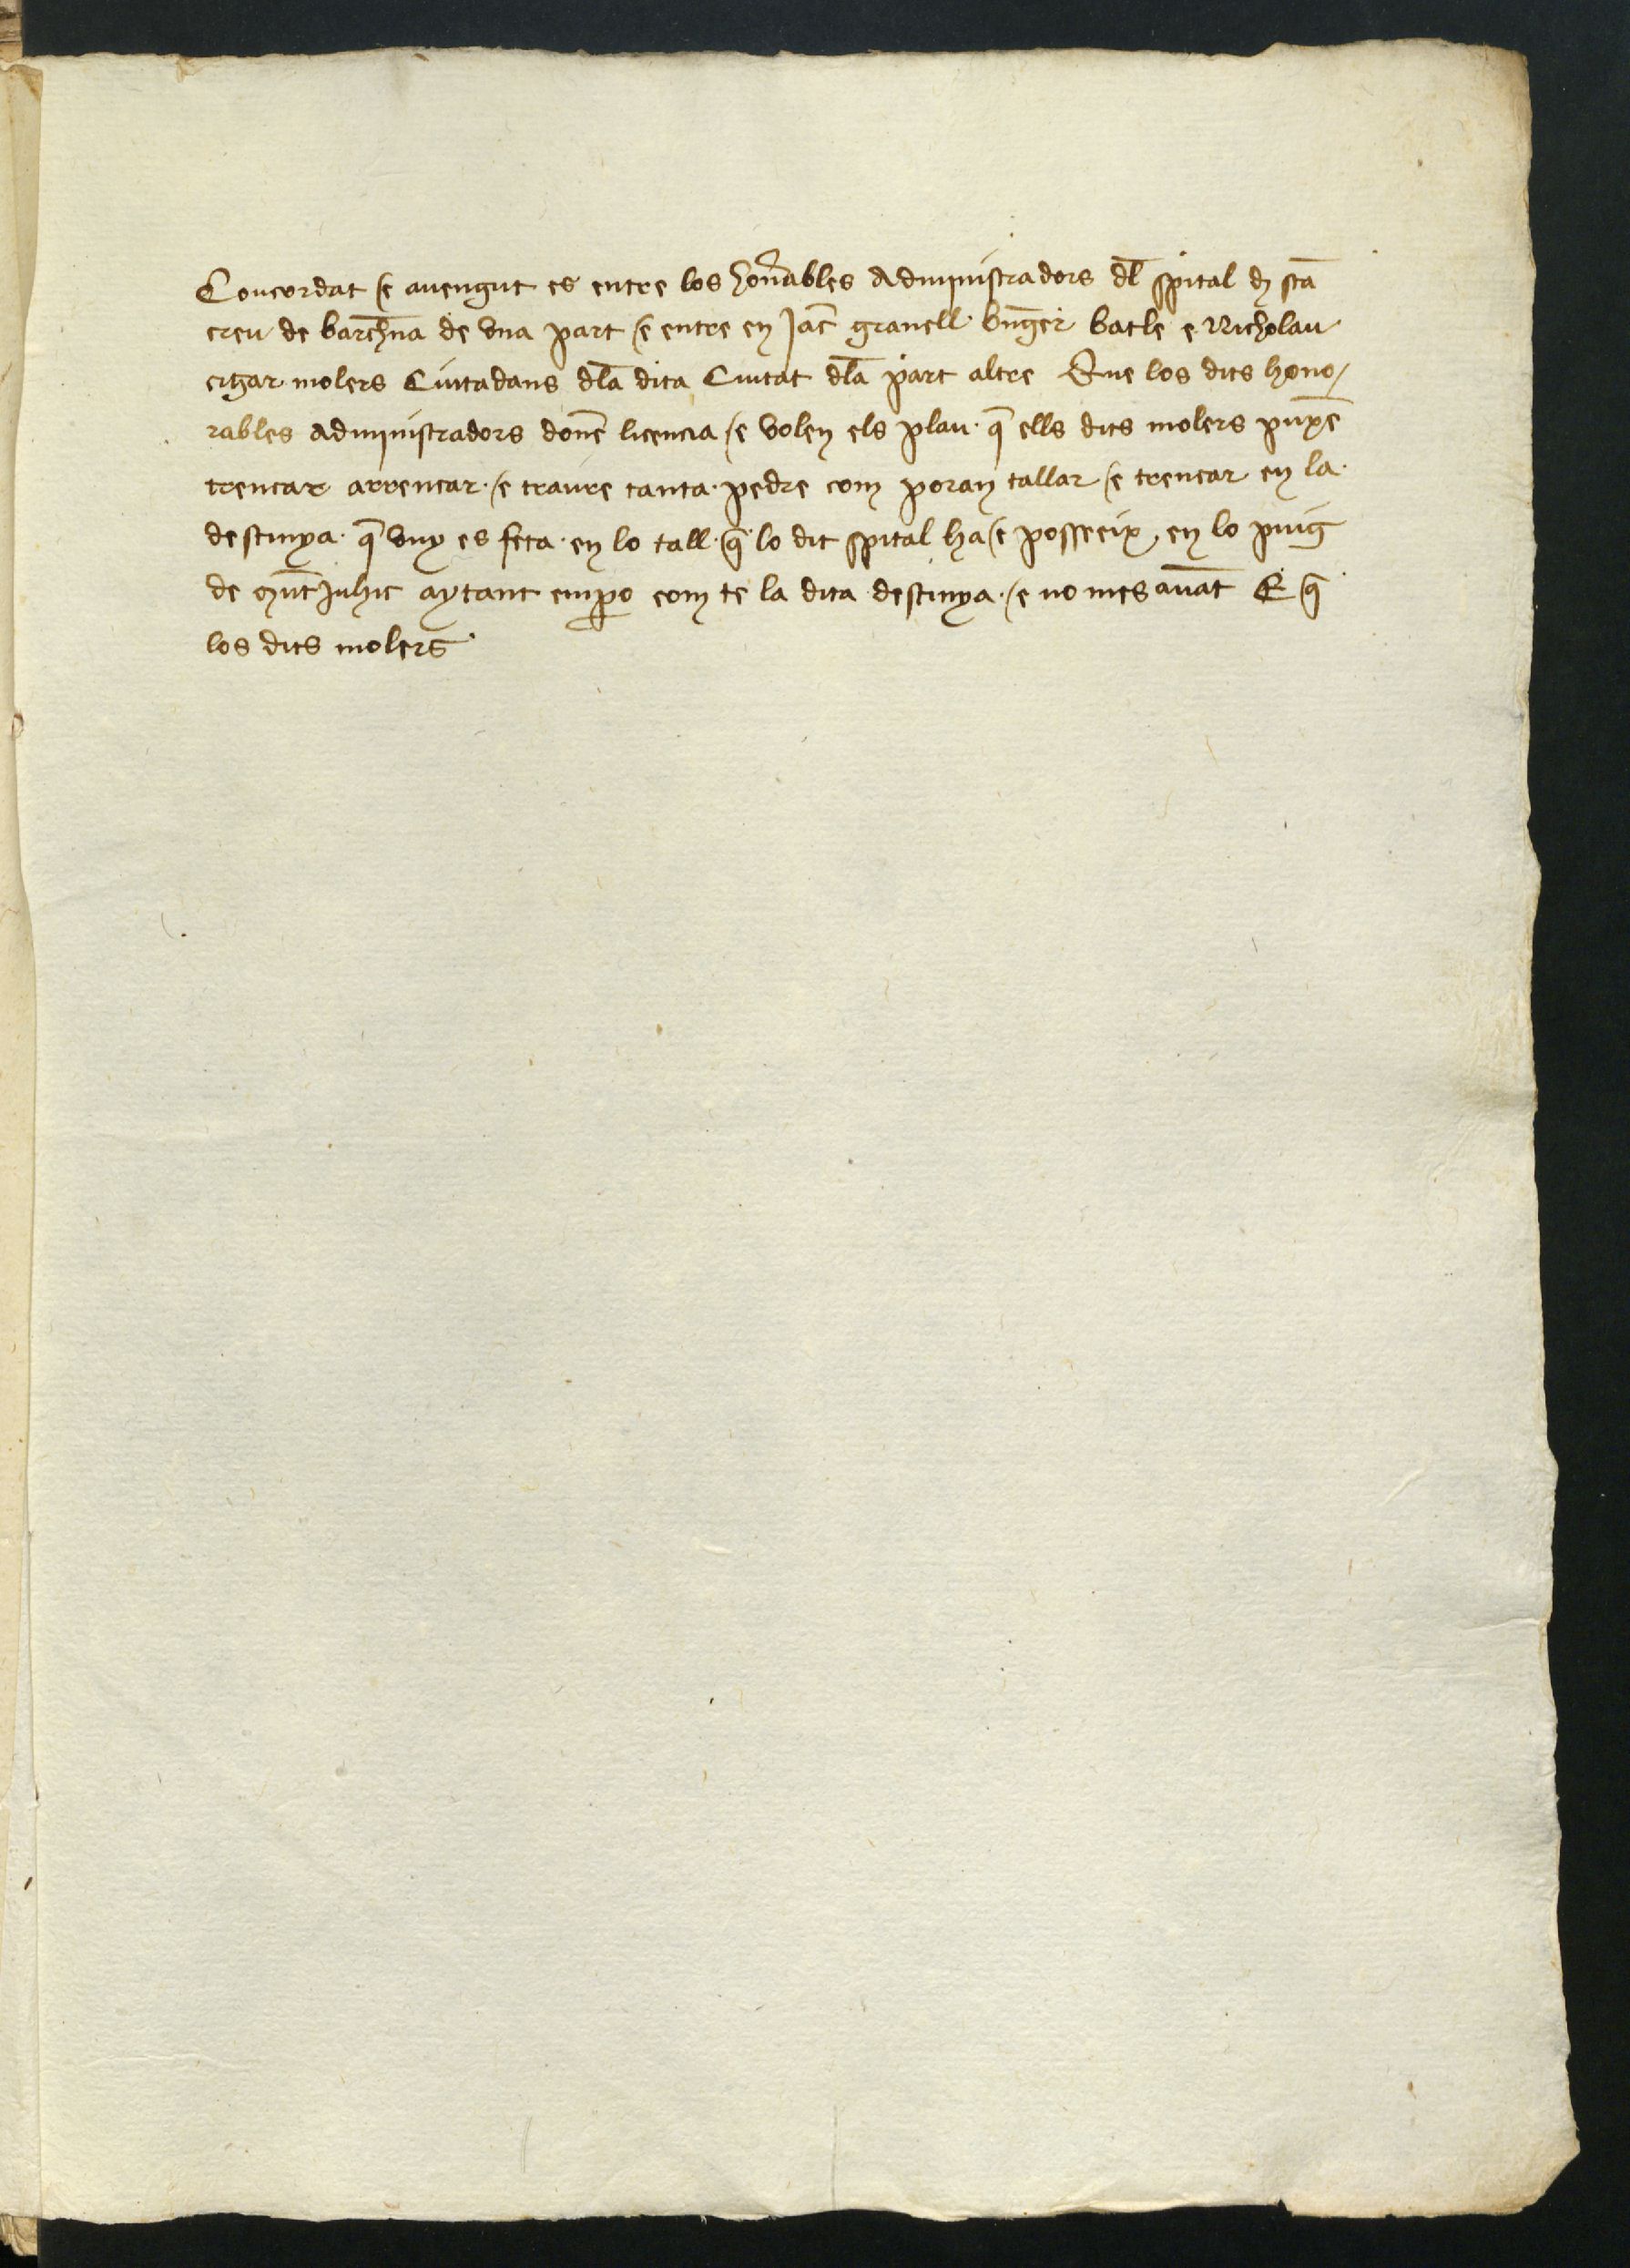 Concordat e auengut es entre los honables Administradors dl spital d sta
creu de barchna de vna part e entre en Jac granell bnger batle e Nicholau
molers Ciutadans dla dita Ciutat dla part altre Que los dits hono/
rables administradors done licencia e volen els plau q ells dits molers puxe
trencar arrencar e traure tanta pedre com poran tallar e trencar en la
destinya q vuy es feta en lo tall q lo dit spital ha e posseeix en lo puig
de munt Juhic aytant empo com te la dita destinya e no mes auat E q
los dits molers